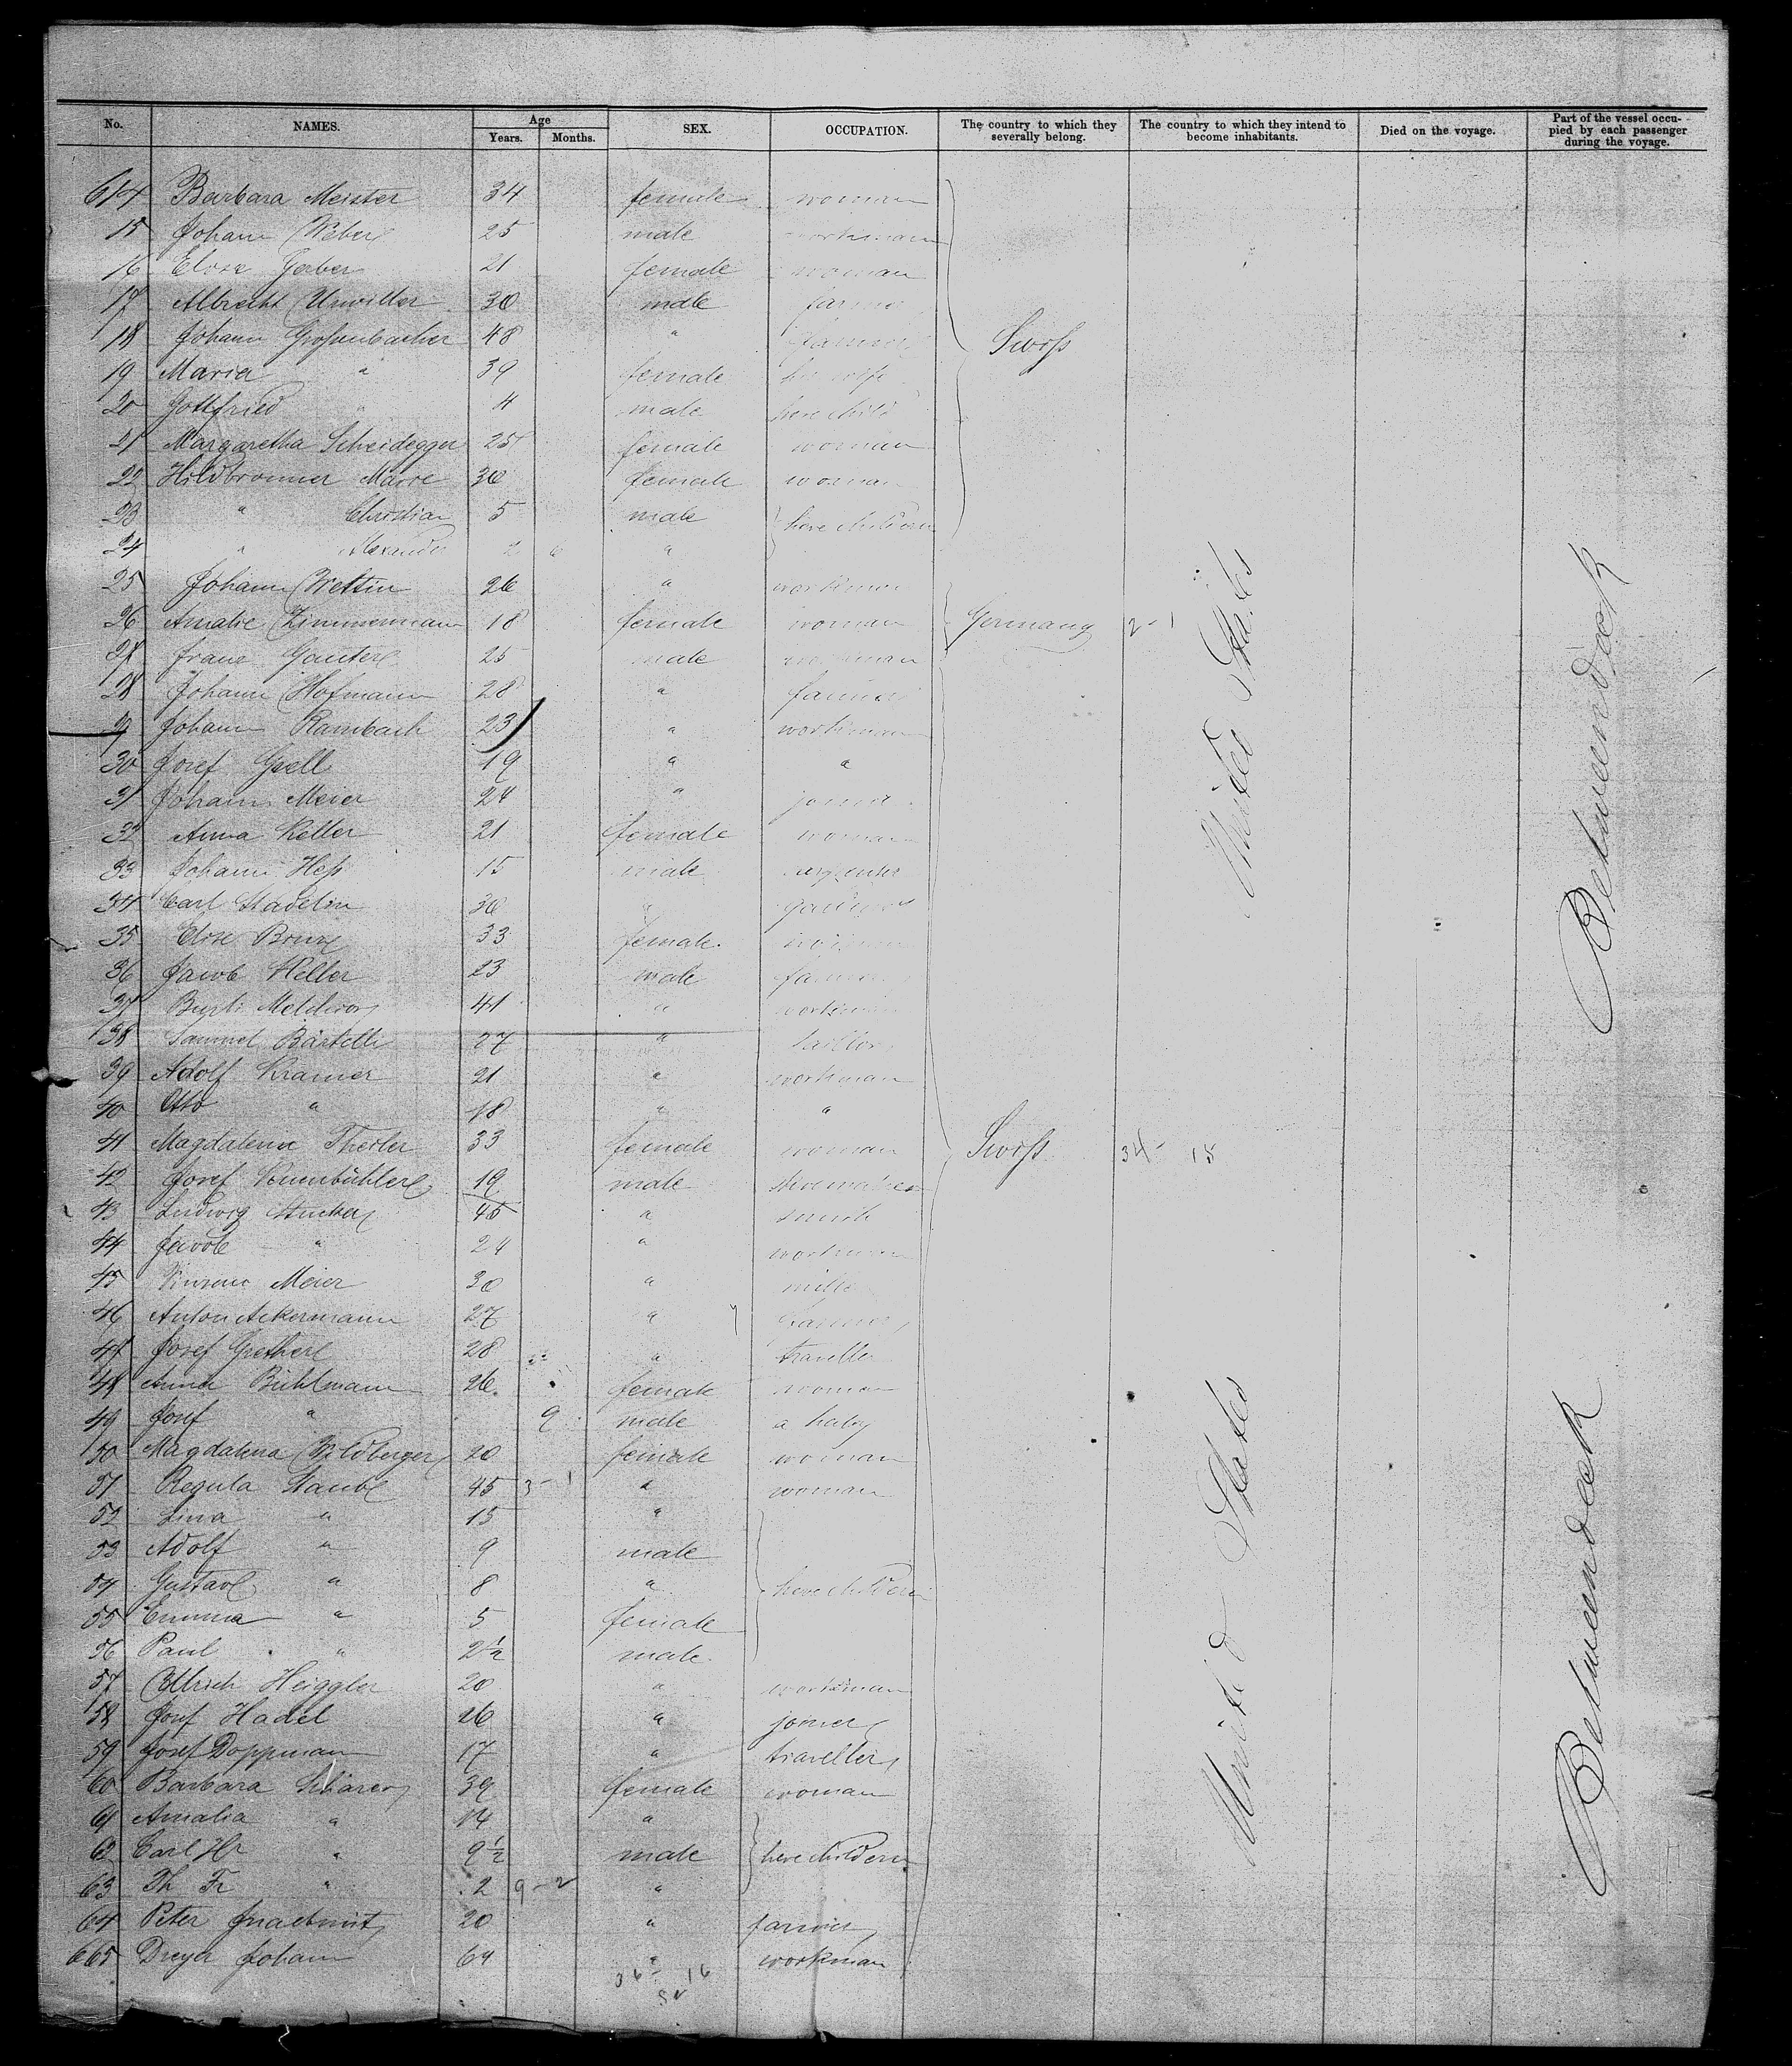 No. NAMES. Age Years. Months. SEX. OCCUPATION. The country to which they severally belong. The country to which they intend to become inhabitants. Died on the voyage. Part of the vessel occupied by each passenger during the voyage.
614 Barbara Meister 34 female woman
15 Johann Weber 25 male workman
16 Elise Gerber 21 female woman
17 Albrecht 30 male farmer
18 Johann Großenbacher 48 " farmer Swiss
19 Maria " 39 female his wife
20 Gottfried " 4 male here child
21 Margaretha Scheidegger 25 female woman
22 Hildbrunner Marie 30 female woman
23 " Christian 5 male here children
24 " Alexander 2 6 "
25 Johann Wettin 26 " workman
26 Amalie Zimmermann 18 female woman Germany 2-1
27 Franz 25 male workman
28 Johann Hofmann 28 " farmer
29 Johann Rambach 23 " workman
30 Josef Gsell 19 " "
31 Johann Meier 24 " joiner
32 Anna Keller 21 female woman
33 Johann Heß 15 male carpenter
34 Carl Stadelin 30 "
35 Elise 33 female woman
36 Jacob Keller 23 male farmer
37 41 " workman
38 Samuel 27 " taillor
39 Adolf Kramer 21 " workman
40 Otto " 18 " "
41 Magdalena 33 female woman Swiss 34- 15
42 Josef 19 male shoemaker
43 Ludwig Stucker 45 " smith
44 Jacob " 24 " workman
45 Meier 30 "
46 Anton Ackermann 27 " farmer
47 Josef 28 " traveller
48 Anna Bühlmann 26 female woman
49 Josef " 9 male a baby
50 Magdalena Wildberger 20 female woman
51 Regula Staub 45 3-1 " woman
52 Lina " 15 "
53 Adolf " 9 male
54 Gustav " 8 " here children
55 Emma " 5 female
56 Paul " 2½ male
57 Ulrich Heiggler 20 " workman
58 Josef Hadel 26 " joiner
59 Josef Doppmann 17 " traveller
60 Barbara Schärer 39 female woman
61 Amalia " 14 "
62 Carl Hr " 9½ male here children
63 Th Fr " 2 9-2 "
64 Peter 20 " farmer
665 Dreyer Johann 64 " workman
36- 16
52
United States
United States
Betweendeck
Betweendeck